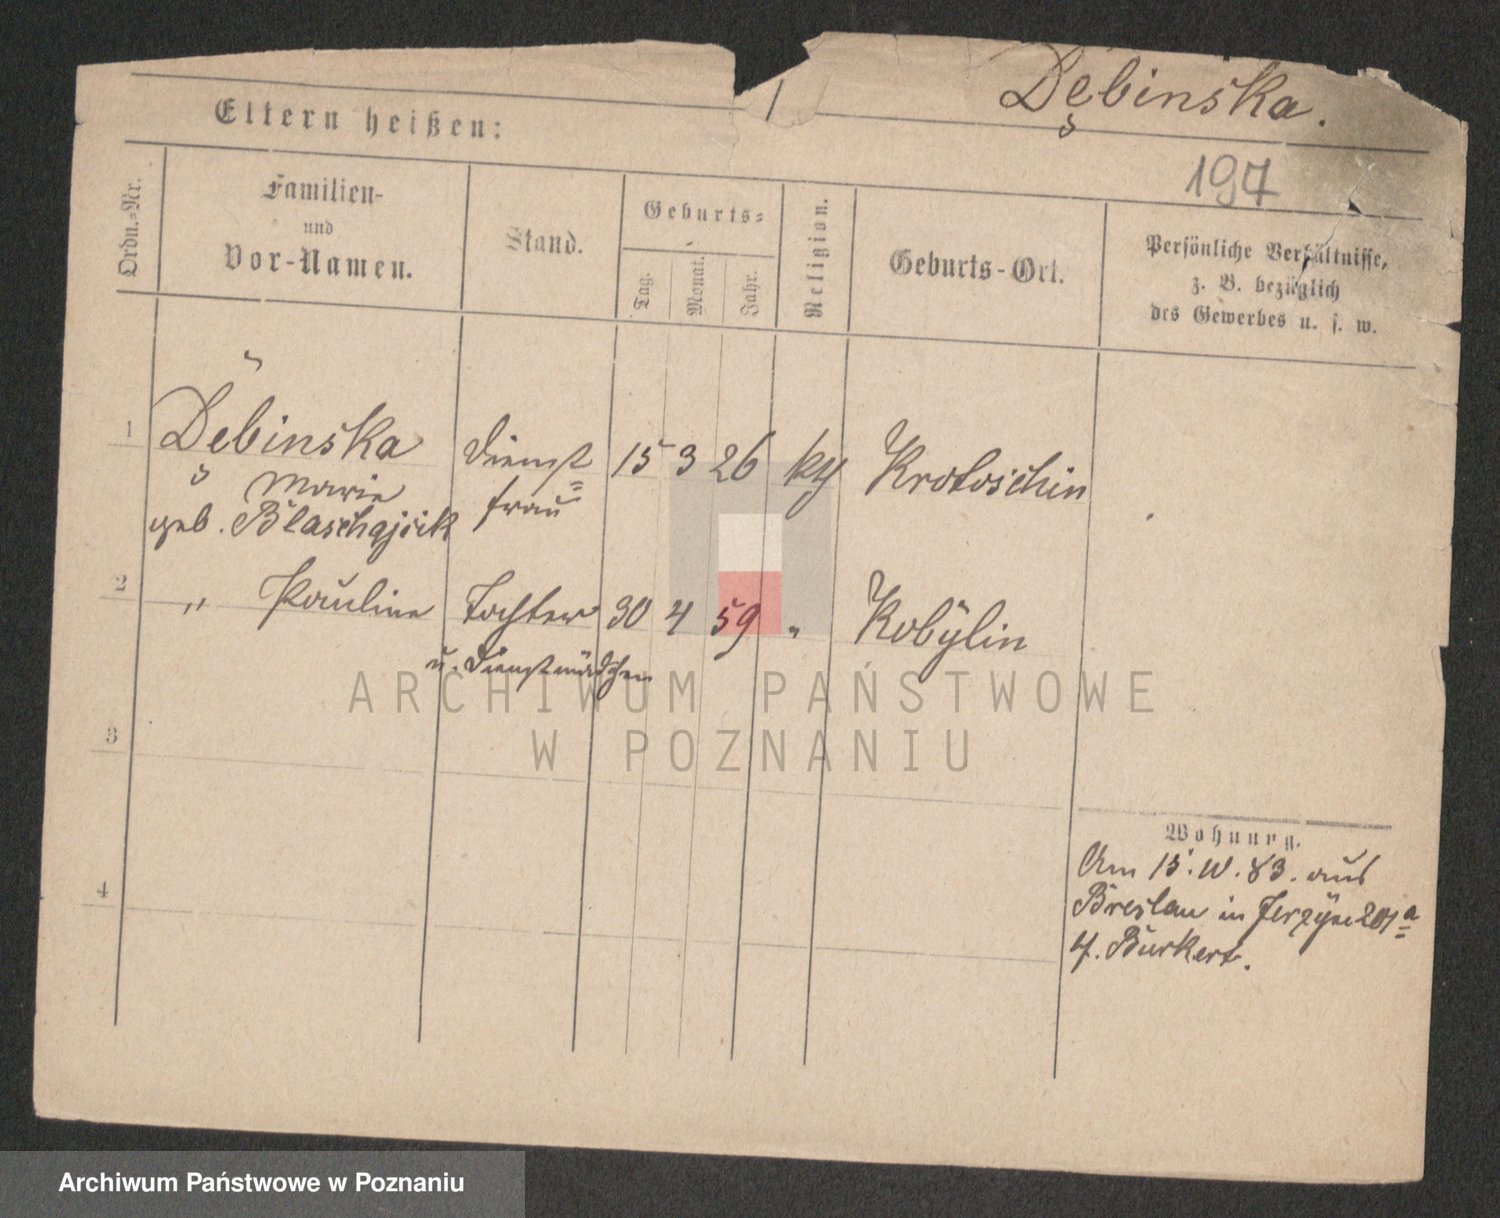 Dębinska.
Eltern heißen:
197
Ordn.-Nr.
Familien-
und
Vor-Namen.
Stand.
Geburts-
Tag.
Monat.
Jahr.
Religion.
Geburts-Ort.
Persönliche Verhältnisse,
z. B. bezüglich
des Gewerbes u. s. w.
1 Dębinska Dienst= 15 3 26 Krotoschin
Marie frau
geb.
2 " Pauline Tochter 30 4 59 " Kobylin
u. Dienstmädchen
ARCHIWUM PAŃSTWOWE
W POZNANIU
3
Wohnung.
4
Am 15. 83. aus
Breslau in Jerzyce 201a
Burkert.
Archiwum Państwowe w Poznaniu